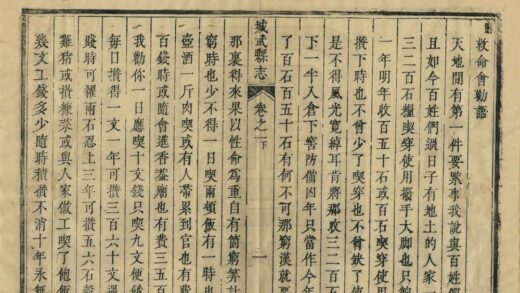 救命會勸語
天地間有第一件要緊事我說與百姓們
且如今百姓們過日子有地土的人家
三二百石糧喫穿使用擺手大脚也只
一年明年收百五十石或百石喫穿使用
攢下時也不曾少了喫穿也不曾欠了使
是不得風光寬綽耳肯將那收三二百石
下一半入倉下窖防備凶年只當作今年
了百石百五十石有何不可那窮漢就要
城武縣志
卷之一下
一
那裏得來果以性命爲重自有箇窮算計
窮時也少不得一日喫兩頓飯有一時也
壺酒一斤肉喫或有人帶累到官也有費
百錢時或隨會進香蓋廟也有費三五百
我勸你一日應喫十文錢只喫九文便
每日攢得一文一年可攢三百六十文遇
賤時可糴兩石忍上三年可攢五六石穀
雞猪或撚或與人家做工喫了他飯
幾文工錢多少隨時積攢不消十年永無